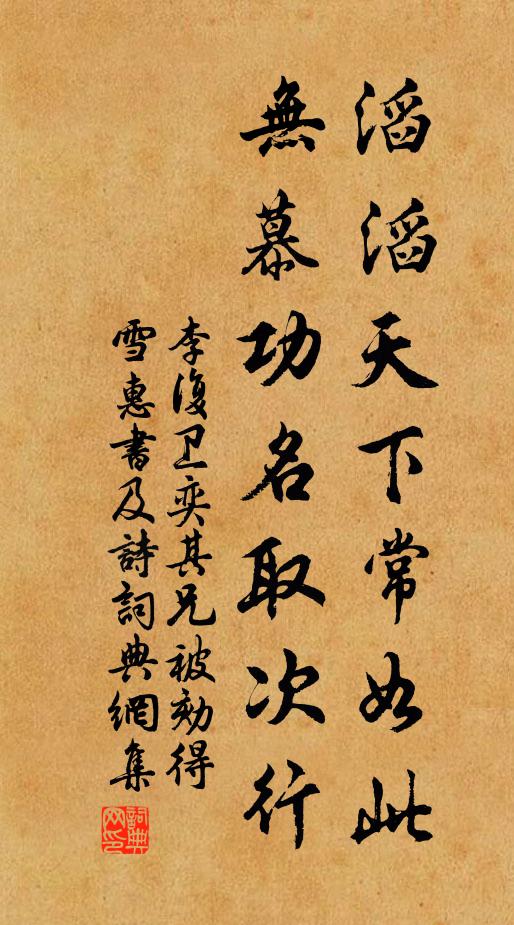 滔滔天下常如此
無慕功名取次行
李復卫奕其兄被劾得
雪惠書及詩詞典網集
詞典网印